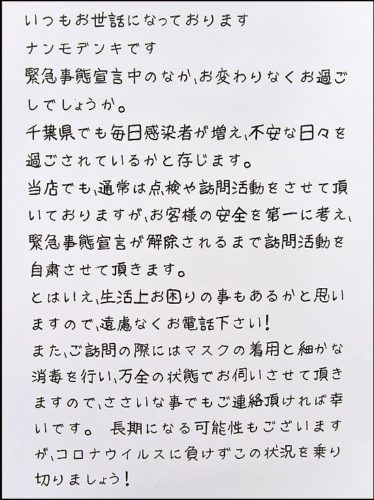 いつもお世話になっております
ナンモデンキです
緊急事態宣言中のなか､お変わりなくお過ご
しでしょうか。
千葉県でも毎日感染者が増え､不安な日々を
過ごされているかと存じます。
当店でも､通常は点検や訪問活動をさせて頂
いておりますが､お客様の安全を第一に考え､
緊急事態宣言が解除されるまで訪問活動を
自粛させて頂きます。
とはいえ､生活上お困りの事もあるかと思い
ますので､遠慮なくお電話下さい!
また､ご訪問の際にはマスクの着用と細かな
消毒を行い､万全の状態でお伺いさせて頂き
ますので､ささいな事でもご連絡頂ければ幸
いです。 長期になる可能性もございます
が､コロナウイルスに負けずこの状況を乗り
切りましょう!